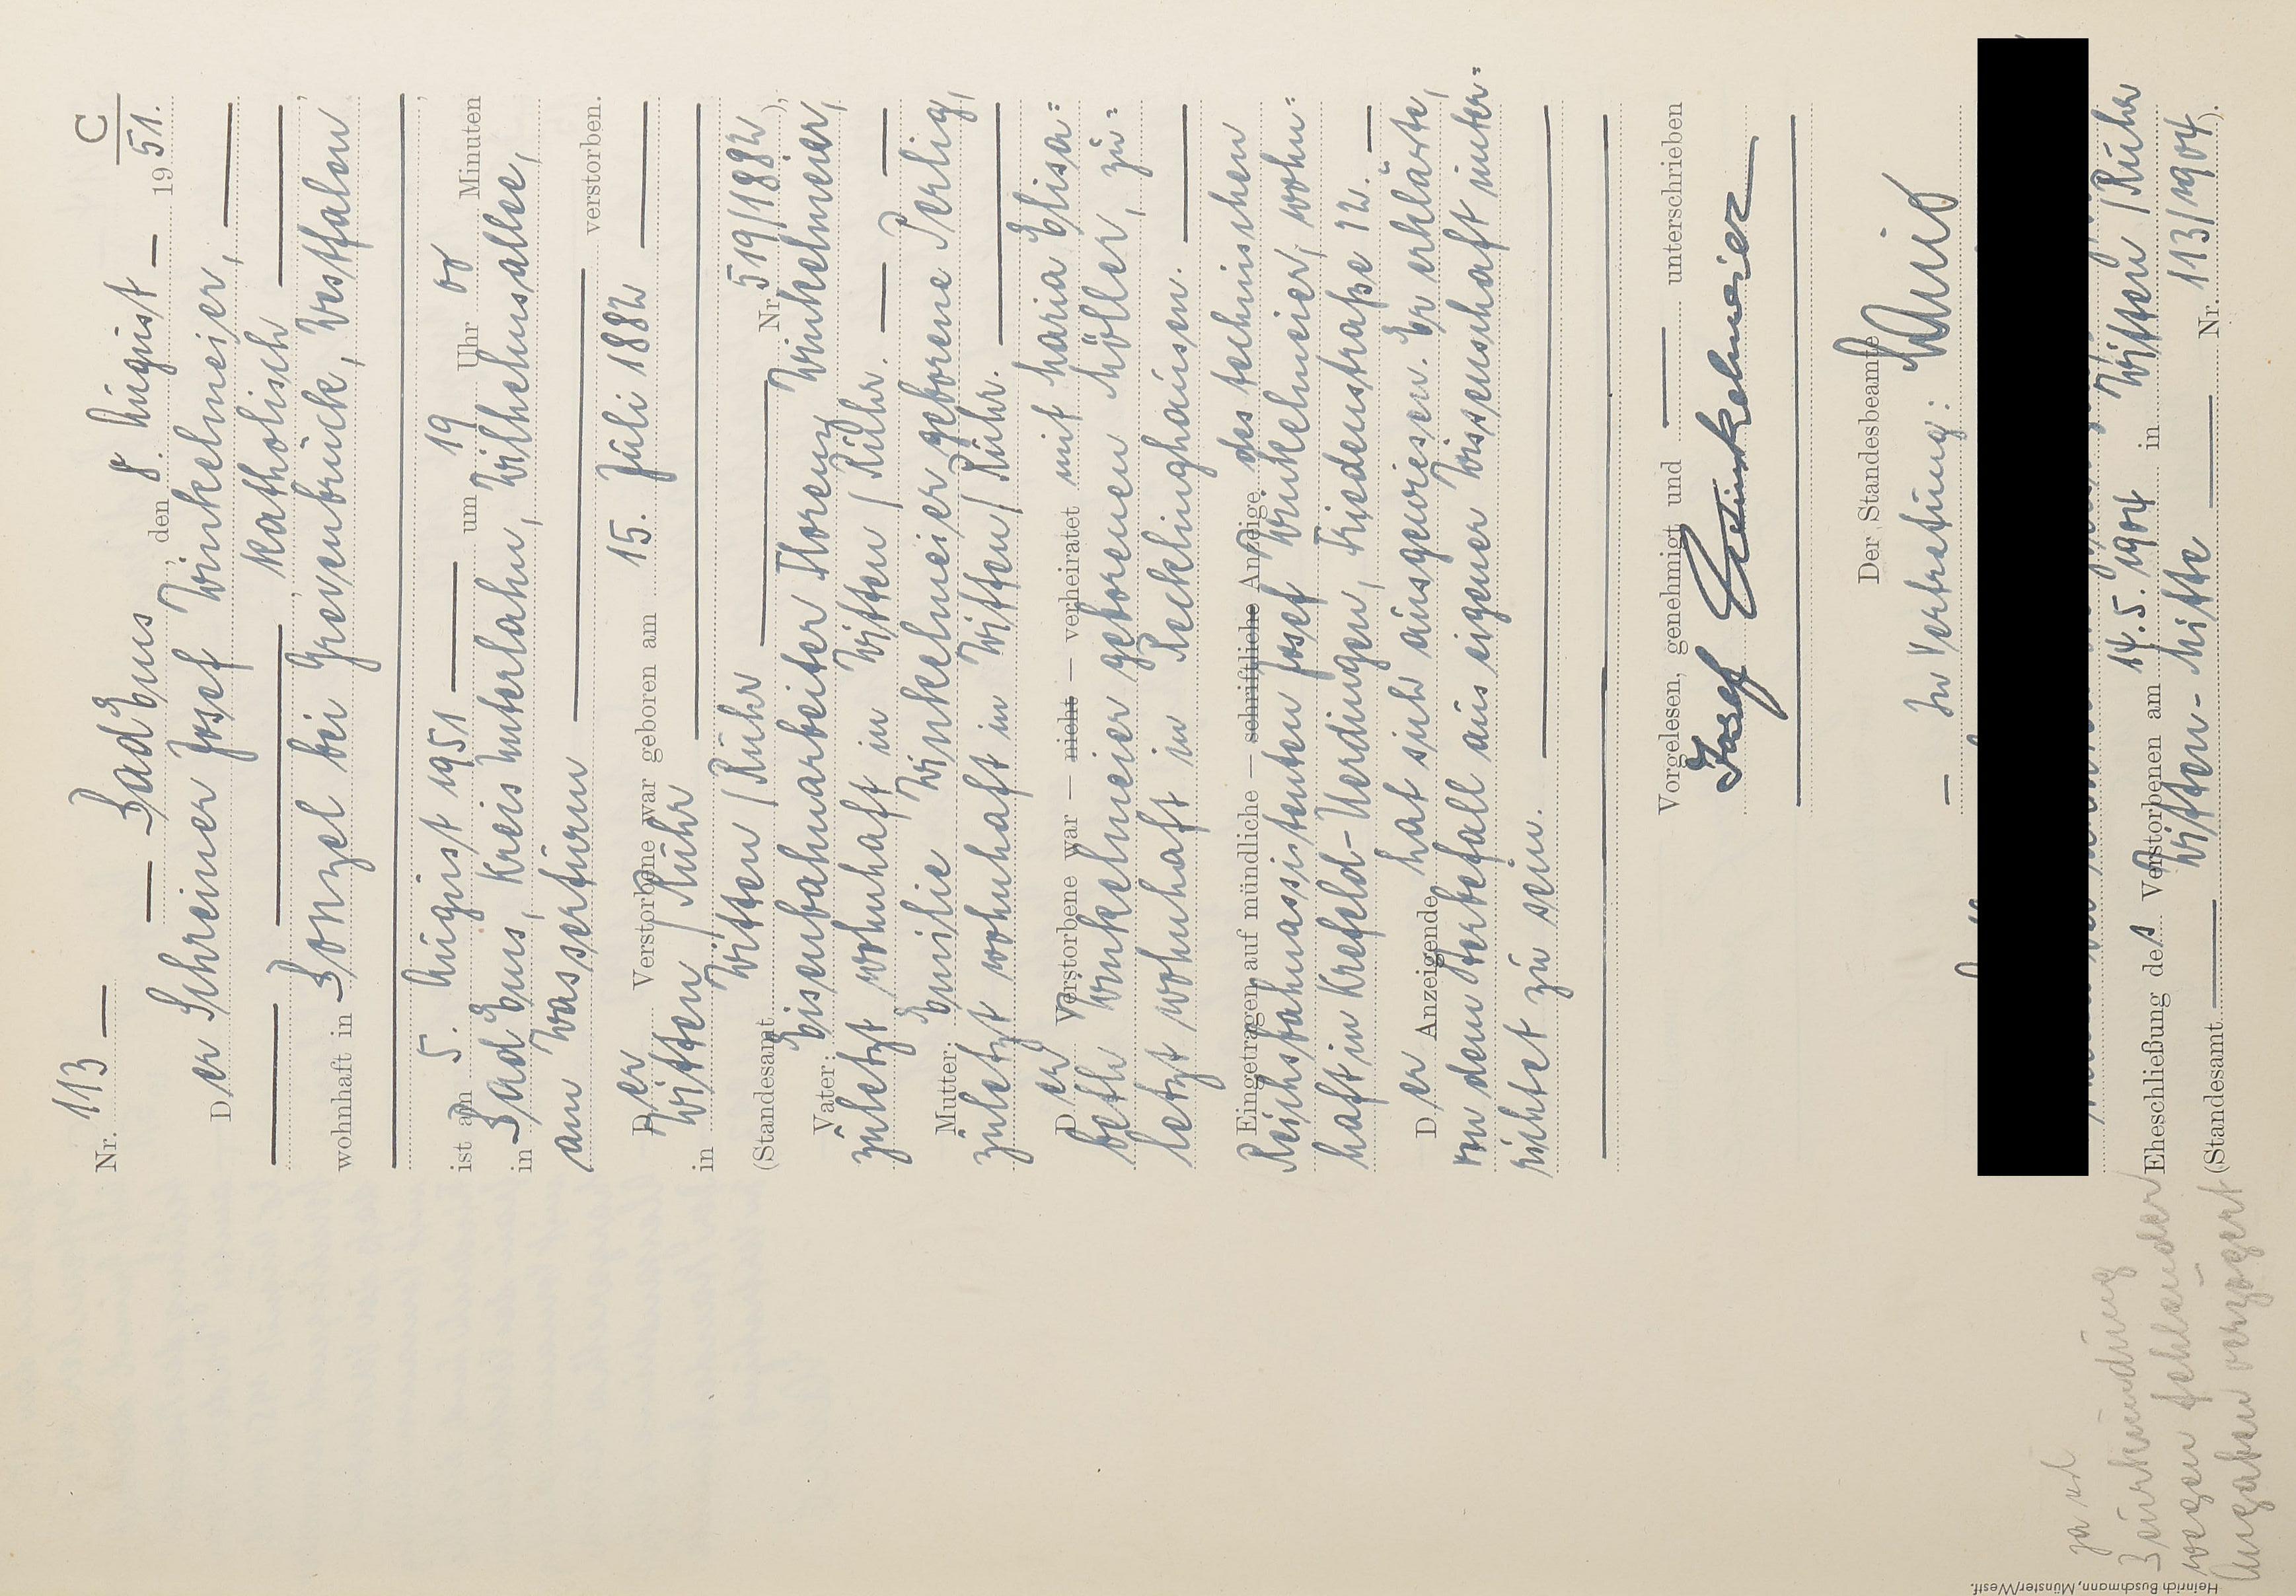 C
Nr. 113 —
— Bad Ems, den 8. August — 1951.
Der Schreiner Josef Winkelmeier, —
— , katholisch —,
wohnhaft in Bonzel bei Grevenbrück, Westfalen,
—,
ist am 5. August 1951 — um 19 Uhr 00 Minuten
in Bad Ems, Kreis Unterlahn, Wilhelmsallee,
am Wasserturm — verstorben.
Der Verstorbene war geboren am 15. Juli 1882 —
in Witten / Ruhr —
(Standesamt Witten / Ruhr — Nr. 519/1882),
Vater: Eisenbahnarbeiter Florenz Winkelmeier,
zuletzt wohnhaft in Witten / Ruhr. — —
Mutter: Emilie Winkelmeier geborene Perlig,
zuletzt wohnhaft in Witten / Ruhr. —
Der Verstorbene war — nicht — verheiratet mit Maria Elisa=
beth Winkelmeier geborenen Möller, zu=
letzt wohnhaft in Recklinghausen. —
Eingetragen auf mündliche — schriftliche Anzeige des technischen
Reichsbahnassistenten Josef Winkelmeier, wohn=
haft in Krefeld-Uerdingen, Friedenstraße 12. —
Der Anzeigende hat sich ausgewiesen. Er erklärte,
von dem Sterbefall aus eigener Wissenschaft unter=
richtet zu sein.
Vorgelesen, genehmigt und — unterschrieben
Josef Winkelmeier
Der Standesbeamte
— In Vertretung:
Eheschließung des Verstorbenen am 14.5.1904 in Witten / Ruhr
(Standesamt — Witten-Mitte — Nr. 113/1904).
Beurkundung
wegen fehlender
Angaben verzögert
Heinrich Buschmann, Münster/Westf.